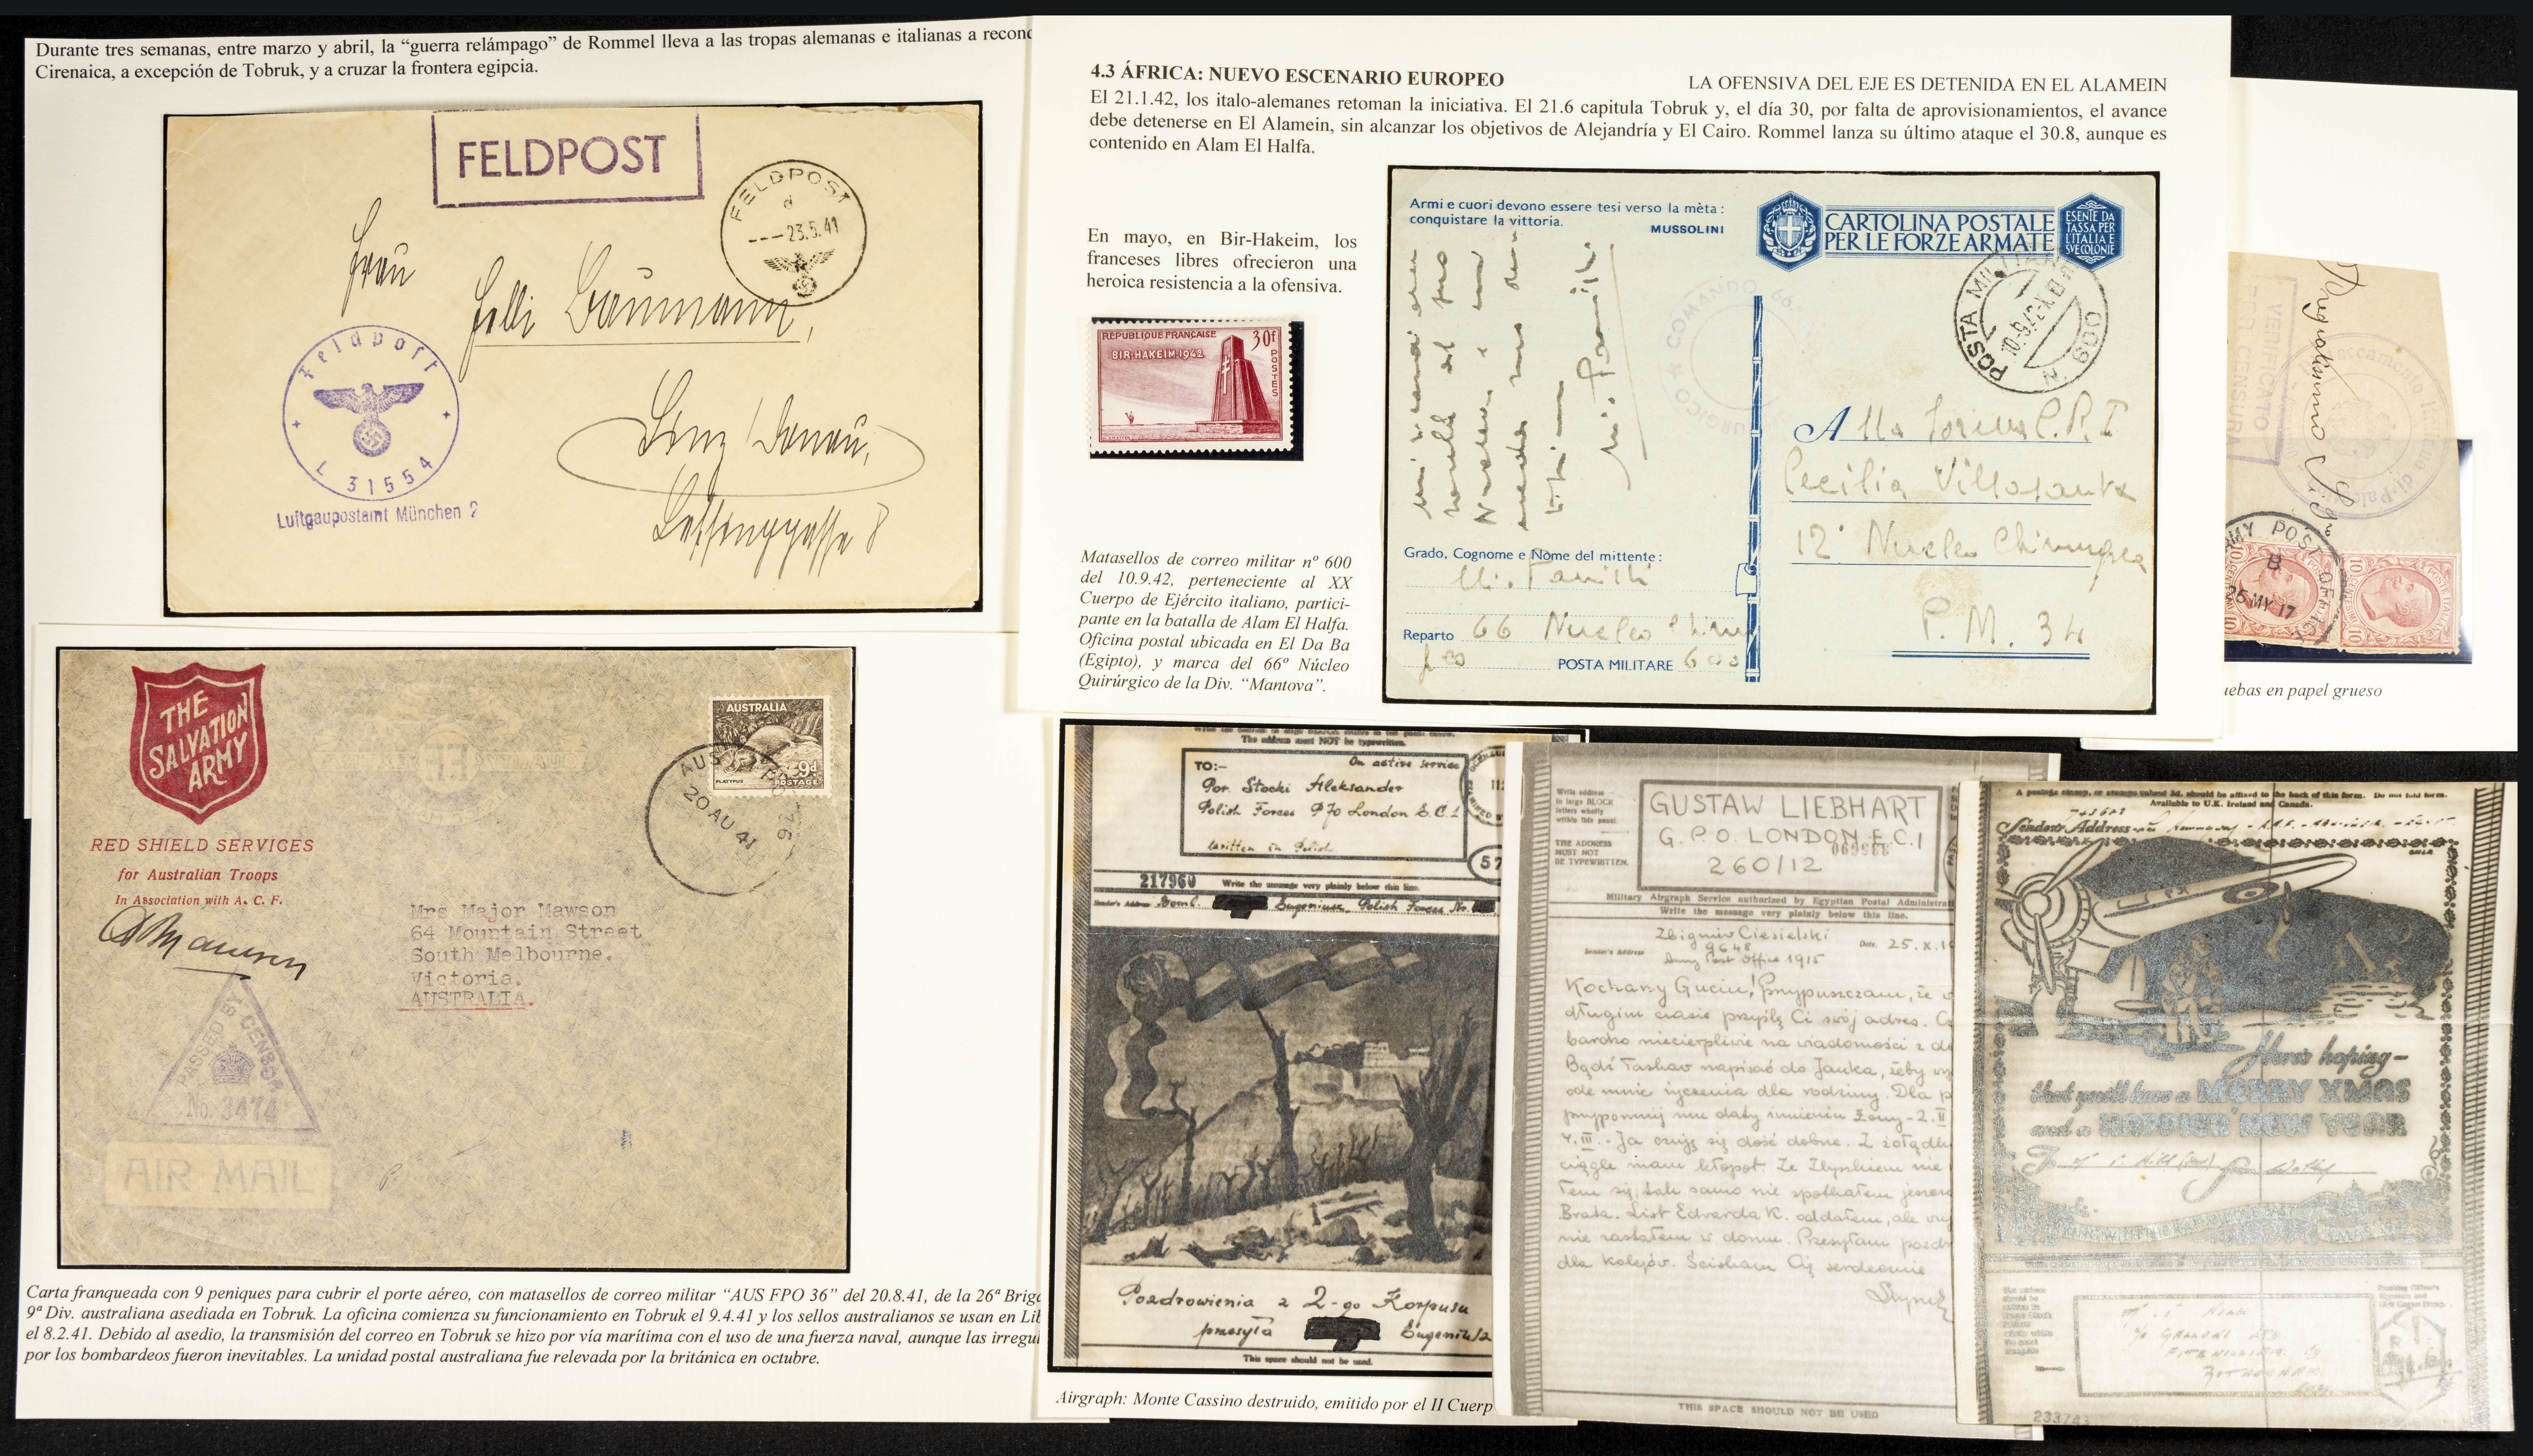 Durante tres semanas, entre marzo y abril, la “guerra relámpago” de Rommel lleva a las tropas alemanas e italianas a recono
Cirenaica, a excepción de Tobruk, y a cruzar la frontera egipcia.
FELDPOST
FELDPOST
d
---23.5.41
Frau
Baumann,
Linz/Donau,
Lessinggasse 8
Feldpost
L 31554
Luftgaupostamt München 2
THE
SALVATION
ARMY
RED SHIELD SERVICES
for Australian Troops
In Association with A. C. F.
AUSTRALIA
9d
PLATYPUS
POSTAGE
20 AU 41
Mrs Major Mawson
64 Mountain Street
South Melbourne.
Victoria.
AUSTRALIA.
PASSED BY CENSOR
No. 3474
AIR MAIL
Carta franqueada con 9 peniques para cubrir el porte aéreo, con matasellos de correo militar “AUS FPO 36” del 20.8.41, de la 26ª Briga
9ª Div. australiana asediada en Tobruk. La oficina comienza su funcionamiento en Tobruk el 9.4.41 y los sellos australianos se usan en Lib
el 8.2.41. Debido al asedio, la transmisión del correo en Tobruk se hizo por vía marítima con el uso de una fuerza naval, aunque las irregul
por los bombardeos fueron inevitables. La unidad postal australiana fue relevada por la británica en octubre.
4.3 ÁFRICA: NUEVO ESCENARIO EUROPEO
LA OFENSIVA DEL EJE ES DETENIDA EN EL ALAMEIN
El 21.1.42, los italo-alemanes retoman la iniciativa. El 21.6 capitula Tobruk y, el día 30, por falta de aprovisionamientos, el avance
debe detenerse en El Alamein, sin alcanzar los objetivos de Alejandría y El Cairo. Rommel lanza su último ataque el 30.8, aunque es
contenido en Alam El Halfa.
En mayo, en Bir-Hakeim, los
franceses libres ofrecieron una
heroica resistencia a la ofensiva.
REPUBLIQUE FRANÇAISE
30f
BIR-HAKEIM-1942
POSTES
Matasellos de correo militar nº 600
del 10.9.42, perteneciente al XX
Cuerpo de Ejército italiano, partici-
pante en la batalla de Alam El Halfa.
Oficina postal ubicada en El Da Ba
(Egipto), y marca del 66º Núcleo
Quirúrgico de la Div. “Mantova”.
Armi e cuori devono essere tesi verso la mèta:
conquistare la vittoria.
MUSSOLINI
CARTOLINA POSTALE
PER LE FORZE ARMATE
ESENTE DA
TASSA PER
L'ITALIA E
SUE COLONIE
POSTA MILITARE
N. 600
COMANDO 66
Alla
Cecilia
12° Nucleo
P. M. 34
Grado, Cognome e Nome del mittente:
Reparto 66 Nucleo
POSTA MILITARE 600
VERIFICATO
PER CENSURA
ARMY POST OFFICE
B
25 MY 17
10
uebas en papel grueso
The address must NOT be typewritten.
TO:-
On active service
Por. Stocki Aleksander
Polish Forces P/o London E.C.1
written in Polish
57
217960
Write the message very plainly below this line.
Sender's Address
Bomb. Eugeniusz Polish Forces No.
Pozdrowienia z 2-go Korpusu
przesyła Eugeniusz
This space should not be used.
Airgraph: Monte Cassino destruido, emitido por el II Cuerp
Write address
in large BLOCK
letters wholly
within this panel.
THE ADDRESS
MUST NOT
BE TYPEWRITTEN.
GUSTAW LIEBHART
G.P.O. LONDON E.C.1
260/12
Military Airgraph Service authorized by Egyptian Postal Administrat
Write the message very plainly below this line.
Zbigniew Ciesielski
9648
Army Post Office 1915
Sender's Address
Date. 25.X.1
Kochany Guciu! Przypuszczam, że
długim czasie przyślę Ci swój adres.
bardzo niecierpliwie na wiadomości z
Bądź łaskaw napisać do Janka, żeby
ode mnie życzenia dla rodziny. Dla
przypomnij mu daty imienin Żony-2.II
4.III.. Ja czuję się dość dobrze. Z żołądk
ciągle mam kłopot. Ze
tem się, tak samo nie spotkałem jeszcz
Brata. List Edwarda K. oddałem, ale
nie zastałem w domu. Przesyłam pozdr
dla kolegów. Ściskam Cię serdecznie
THIS SPACE SHOULD NOT BE USED
A postage stamp, or stamps valued 3d. should be affixed to the back of this form. Do not fold form.
Available to U.K. Ireland and Canada.
Sender's Address
Here's hoping—
that you'll have a MERRY XMAS
and a HAPPIER NEW YEAR
233743